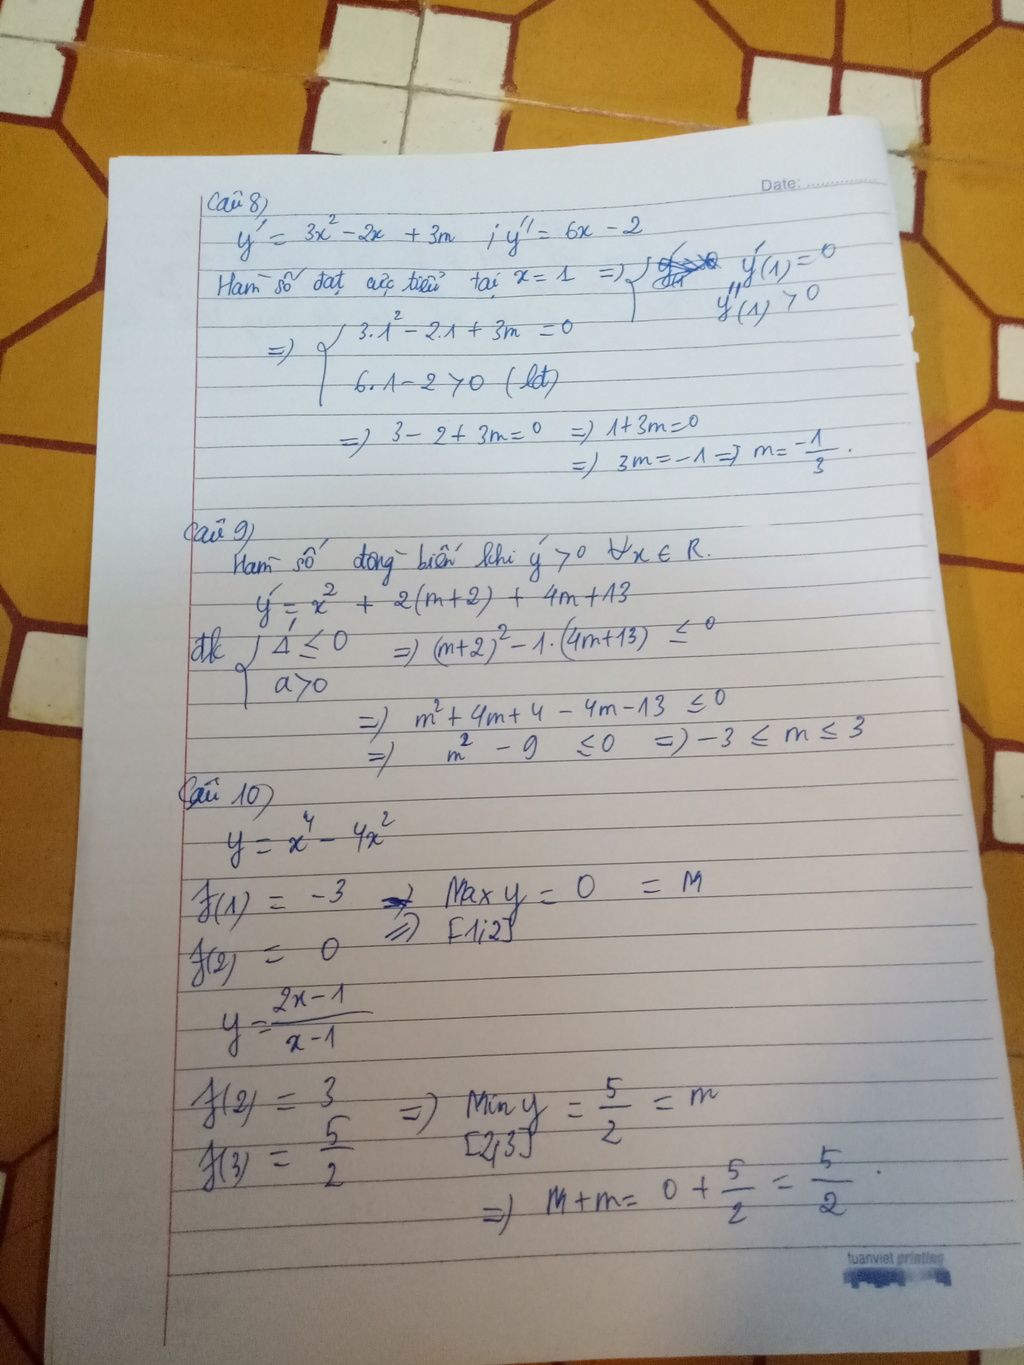 Date: ................
Câu 8)
y' = 3x² - 2x + 3m ; y'' = 6x - 2
Hàm số đạt cực tiểu tại x = 1 => { y'(1) = 0
y''(1) > 0
=> { 3.1² - 2.1 + 3m = 0
6.1 - 2 > 0 (lđ)
=> 3 - 2 + 3m = 0 => 1 + 3m = 0
=> 3m = -1 => m = -1/3.
Câu 9)
Hàm số đồng biến khi y' > 0 ∀x ∈ R.
y' = x² + 2(m+2) + 4m + 13
đk { Δ' ≤ 0 => (m+2)² - 1.(4m+13) ≤ 0
a > 0
=> m² + 4m + 4 - 4m - 13 ≤ 0
=> m² - 9 ≤ 0 => -3 ≤ m ≤ 3
Câu 10)
y = x⁴ - 4x²
f(1) = -3 => Max y = 0 = M
[1;2]
f(2) = 0
y = (2x-1)/(x-1)
f(2) = 3 => Min y = 5/2 = m
[2;3]
f(3) = 5/2
=> M + m = 0 + 5/2 = 5/2.
tuanviet printing